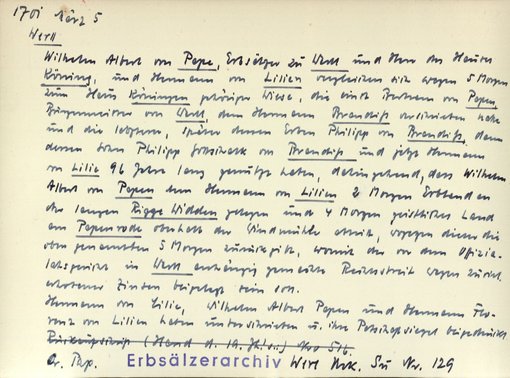 1701 März 5
Werll
Wilhelm Albert von Pape, Erbsälzer zu Werl und Herr des Hauses
Köning, und Hermann von Lilien vergleichen sich wegen 5 Morgen
zum Haus Köningen gehöriger Wiese, die einst Bertram von Papen,
Bürgermeister von Werl, dem Hermann Brandiß verschrieben hatte
und die letzterer, später dessen Erben Philipp von Brandiß, dann
dessen Sohn Philipp von Brandiß und jetzt Hermann
von Lilie 96 Jahre lang genutzt haben, dahingehend, dass Wilhelm
Albert von Papen dem Hermann von Lilien 2 Morgen Erbland an
der langen Rigge Widden gelegen und 4 Morgen zehntfreies Land
am Papenrode oberhalb der Windmühle abtritt, wogegen dieser die
oben genannten 5 Morgen zurückgibt, womit der vor dem Offizia-
latsgericht in Werl anhängig gemachte Rechtsstreit wegen zuviel
erhobener Zinsen beigelegt sein soll.
Hermann von Lilie, Wilhelm Albert Papen und Hermann Flo-
renz von Lilien haben unterschrieben u. ihre Petschaftsiegel beigedrückt
(Hand d. 19. Jhs.) No 516.
Or. Pap. Erbsälzerarchiv Werl Urk. Su Nr. 129